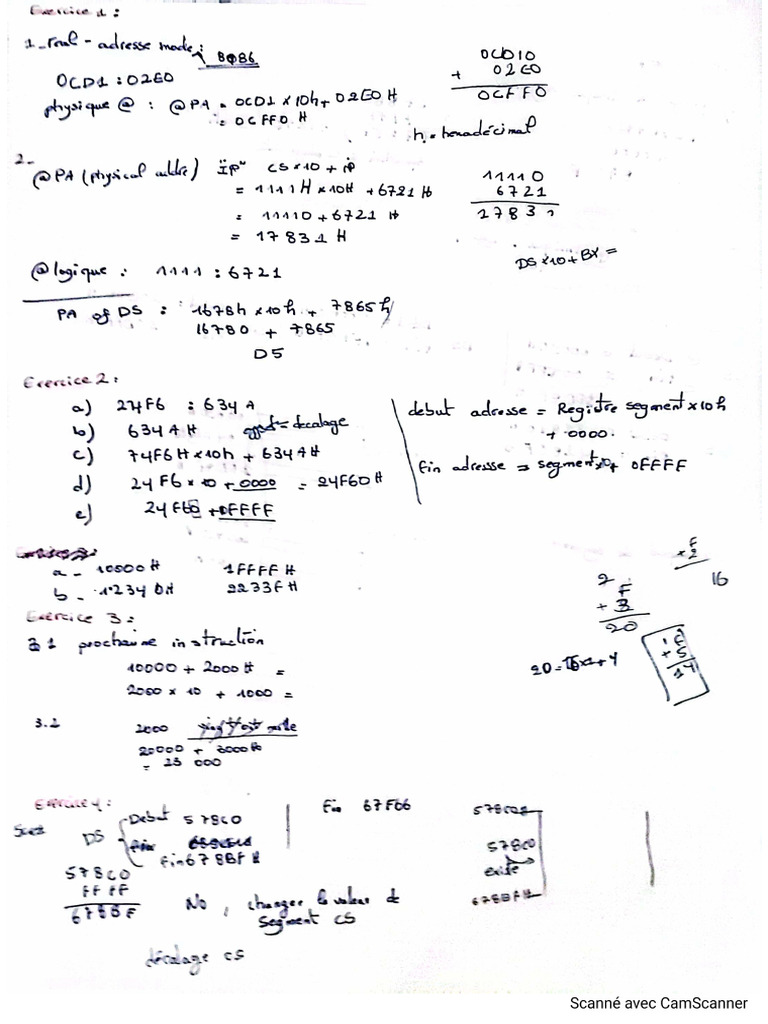 Exercice 1 :
1_ real - adresse mode : 8086
0CD1 : 02E0
physique @ : @PA = 0CD1 x 10h + 02E0 H
= 0CFF0 H
0CD10
+ 02E0
0CFF0
h = hexadécimal
2-
@PA (physical addre) CS x 10 + ip
= 1111H x 10H + 6721 H
= 11110 + 6721 H
= 17831 H
11110
6721
1783
DS x 10 + BX =
@ logique : 1111 : 6721
PA of DS : 1678h x 10h + 7865 h
16780 + 7865
DS
Exercice 2 :
a) 24F6 : 634A
b) 634A H = decalage
c) 74F6H x 10h + 634A H
d) 24F6 x 10 + 0000 = 24F60 H
e) 24F60 + 0FFFF
debut adresse = Registre segment x 10 h
+ 0000.
fin adresse = segment x 10 + 0FFFF
a - 10000 H 1FFFF H
b - 12340H 2233F H
F
x 2
16
2 F
+ 3
20
20 = 16 x 1 + 4
F
+ 5
14
Exercice 3 :
3.1 prochaine instruction
10000 + 2000 H =
2000 x 10 + 1000 =
3.2 2000
20000 + 3000 h
= 23 000
Exercice 4 :
DS
Debut 578C0
Fin 678BF H
Fin 67F66
578C0
FFFF
678BF
578C0
existe
678BFH
No, changer la valeur de
segment CS
décalage CS
Scanné avec CamScanner